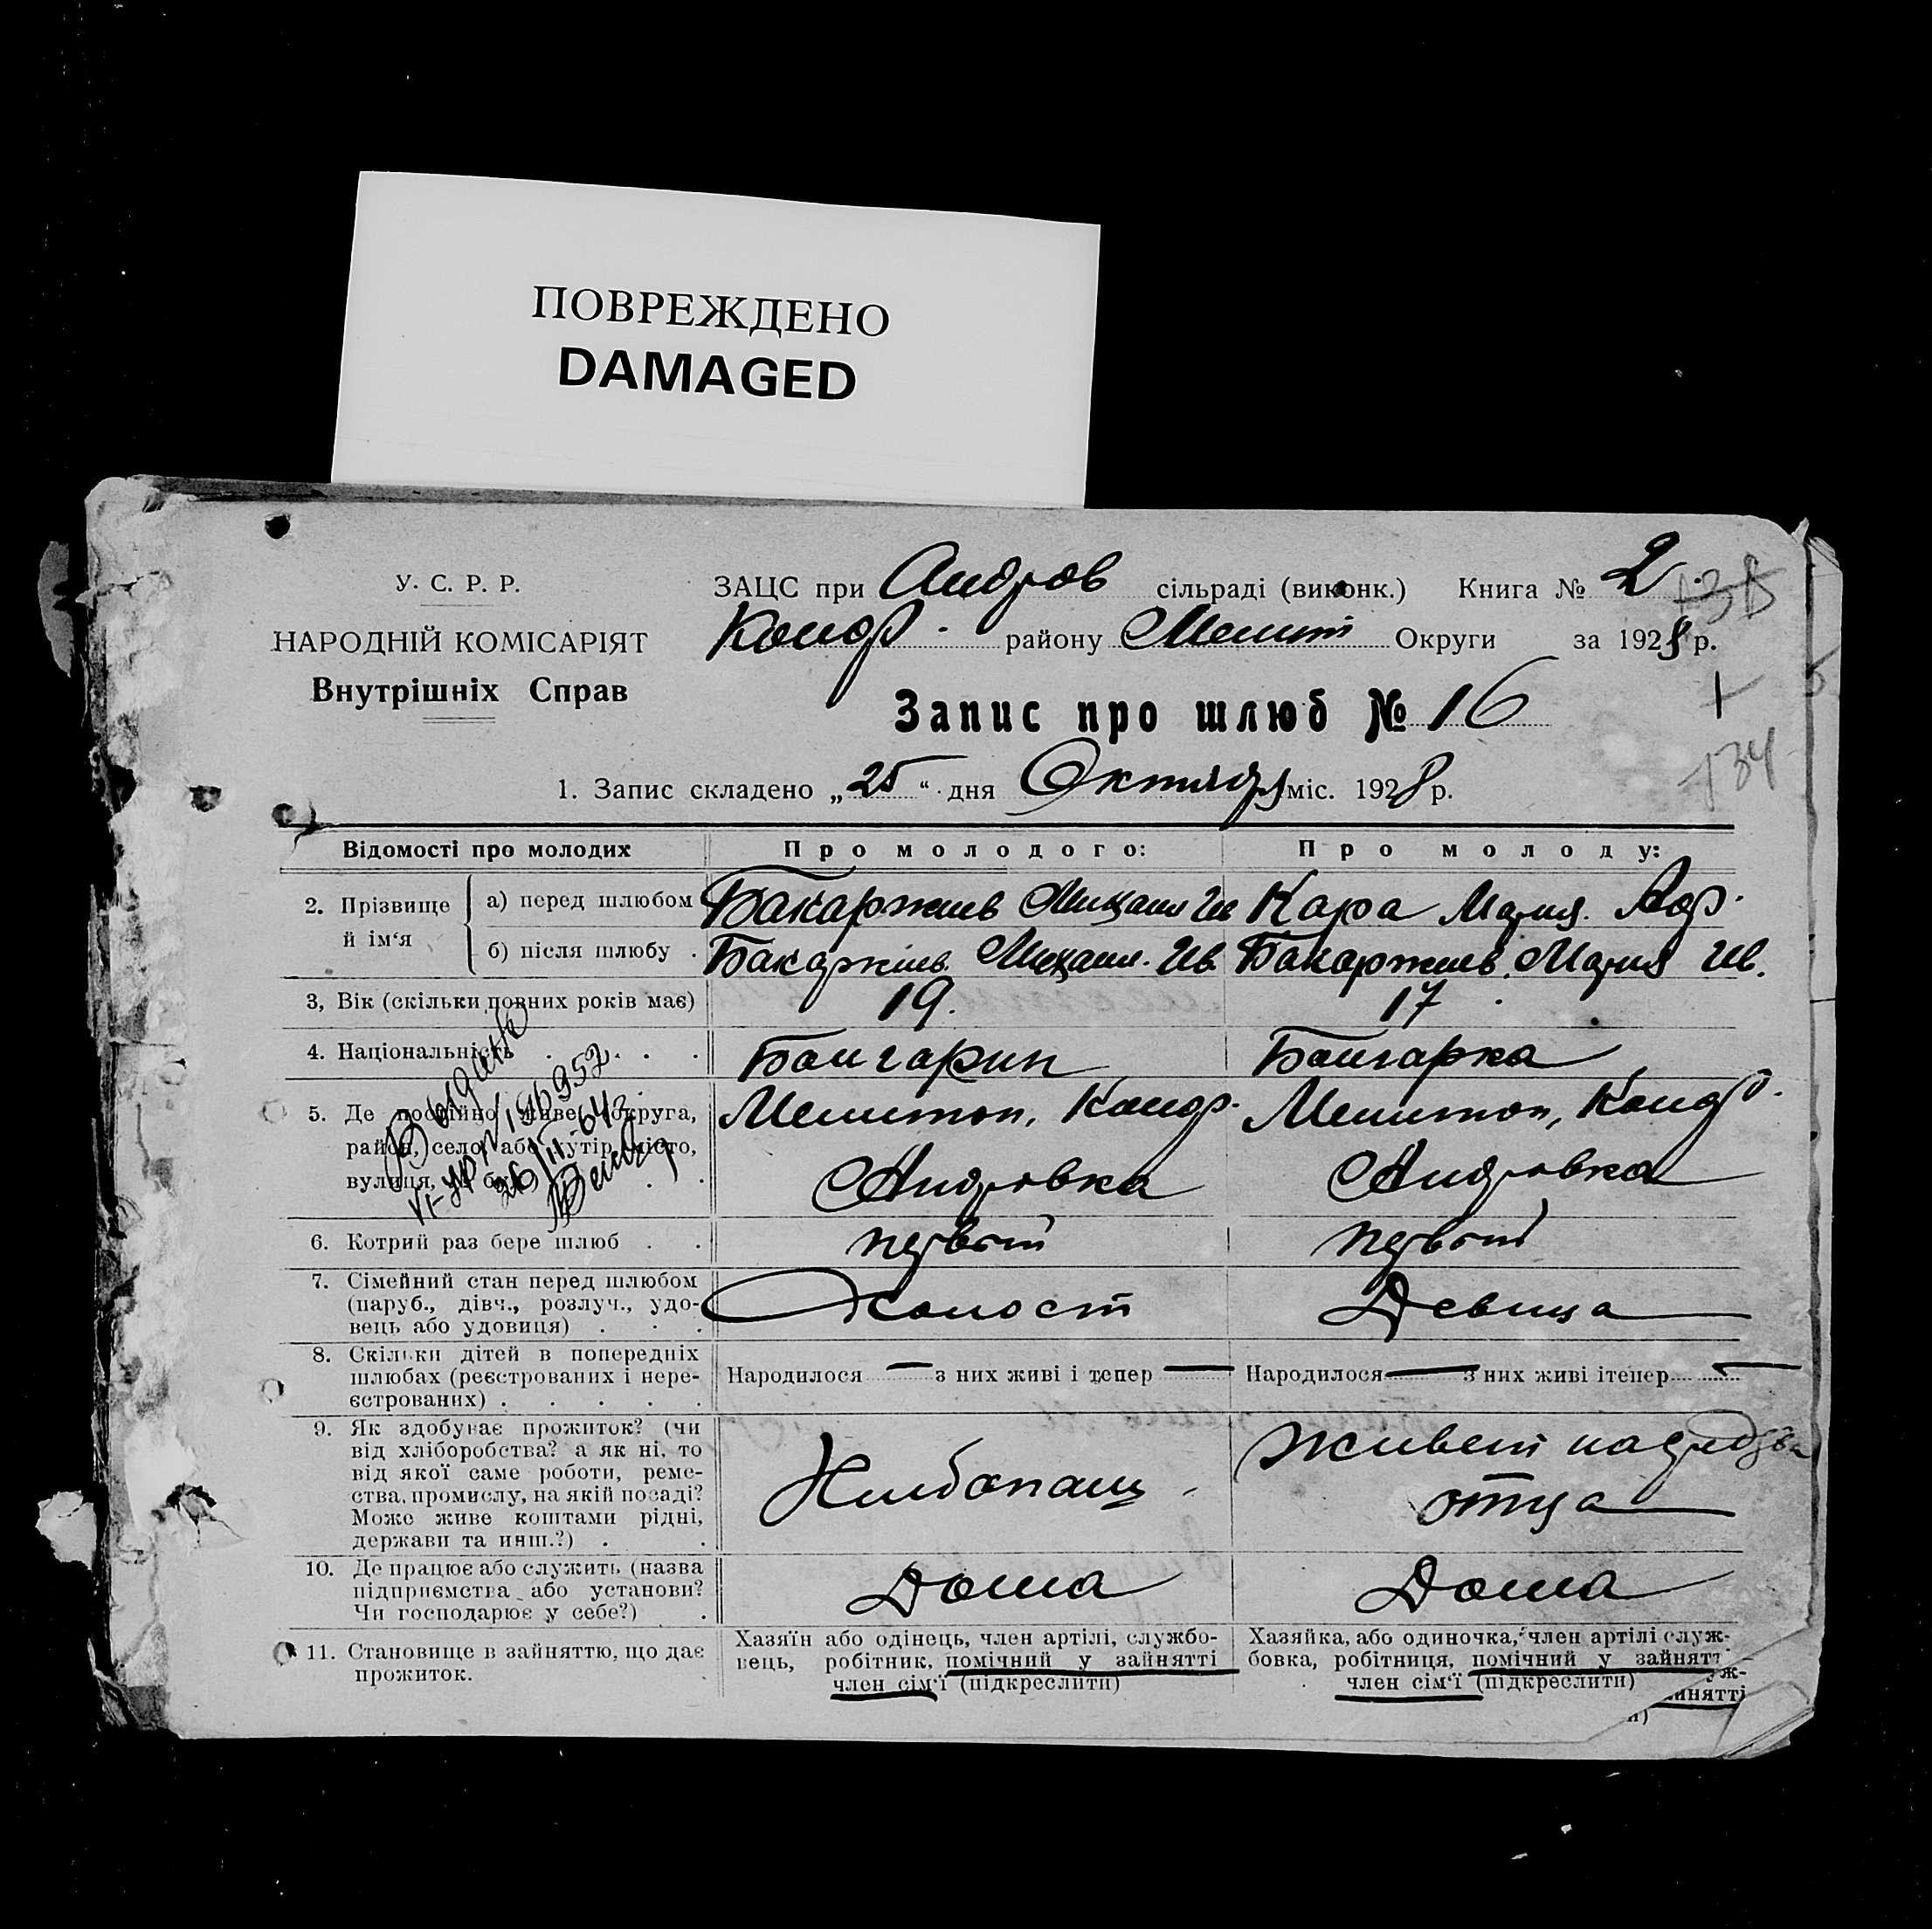 ПОВРЕЖДЕНО
DAMAGED
У. С. Р. Р.
НАРОДНІЙ КОМІСАРІЯТ
Внутрішніх Справ
ЗАЦС при Андров сільраді (виконк.) Книга № 2
району Мелит Округи за 1928 р.
Запис про шлюб № 16
134
1. Запис складено „25“ дня Октября міс. 1928 р.
Відомості про молодих Про молодого: Про молоду:
2. Прізвище й ім'я
а) перед шлюбом Бакаржиев Михаил Ив Кара Мария
б) після шлюбу . Бакаржиев Михаил. Ив. Бакаржиев Мария Ив.
3, Вік (скільки повних років має) 19. 17
4. Національність . . . . Болгарин Болгарка
5. Де постійно живе (округа, Мелитоп, Мелитоп,
район, село або хутір, місто, Андровка Андровка
вулиця, № буд.)
Выдано
VI-УР № 196952
26/III-64г.
6. Котрий раз бере шлюб . . первый первый
7. Сімейний стан перед шлюбом
(паруб., дівч., розлуч., удо- Холост Девица
вець або удовиця) . . .
8. Скільки дітей в попередніх
шлюбах (реєстрованих і нере- Народилося — з них живі і тепер — Народилося — з них живі ітепер —
єстрованих) . . . . .
9. Як здобуває прожиток? (чи
від хліборобства? а як ні, то Живет на средства
від якої саме роботи, реме-
ства, промислу, на якій посаді? Хлебопаш отца
Може живе коштами рідні,
держави та инш.?) . .
10. Де працює або служить (назва
підприємства або установи? Дома Дома
Чи господарює у себе?) .
11. Становище в зайняттю, що дає прожиток.
Хазяїн або одінець, член артілі, службо-
вець, робітник, помічний у зайнятті
член сім'ї (підкреслити)
Хазяйка, або одиночка, член артілі служ-
бовка, робітниця, помічний у зайнятт
член сім'ї (підкреслити)
уж-
йнятті